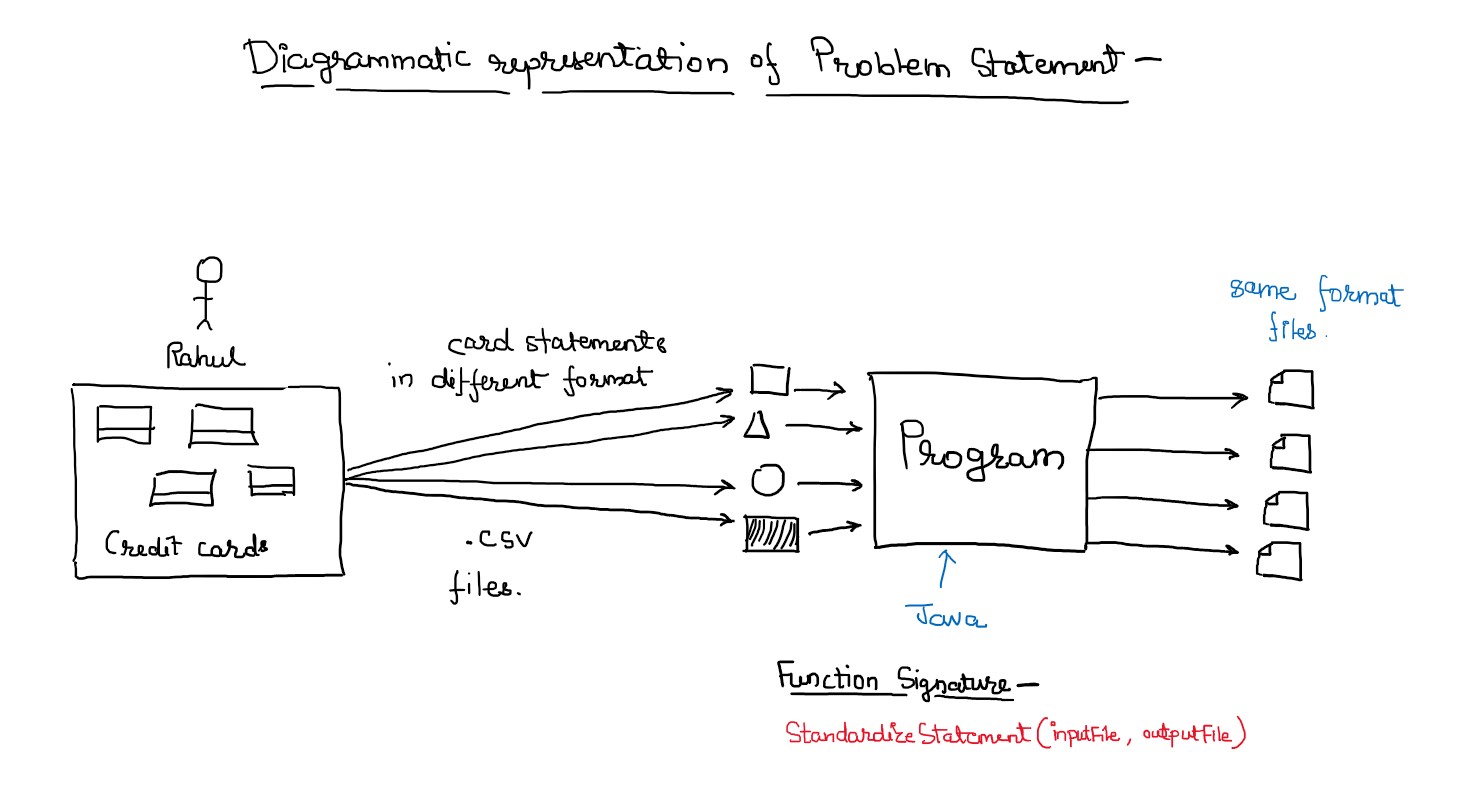 Diagrammatic representation of Problem Statement -
Rahul
Credit cards
card statements
in different format
.csv
files.
Program
Java
same format
files.
Function Signature -
StandardizeStatement(inputFile, outputFile)